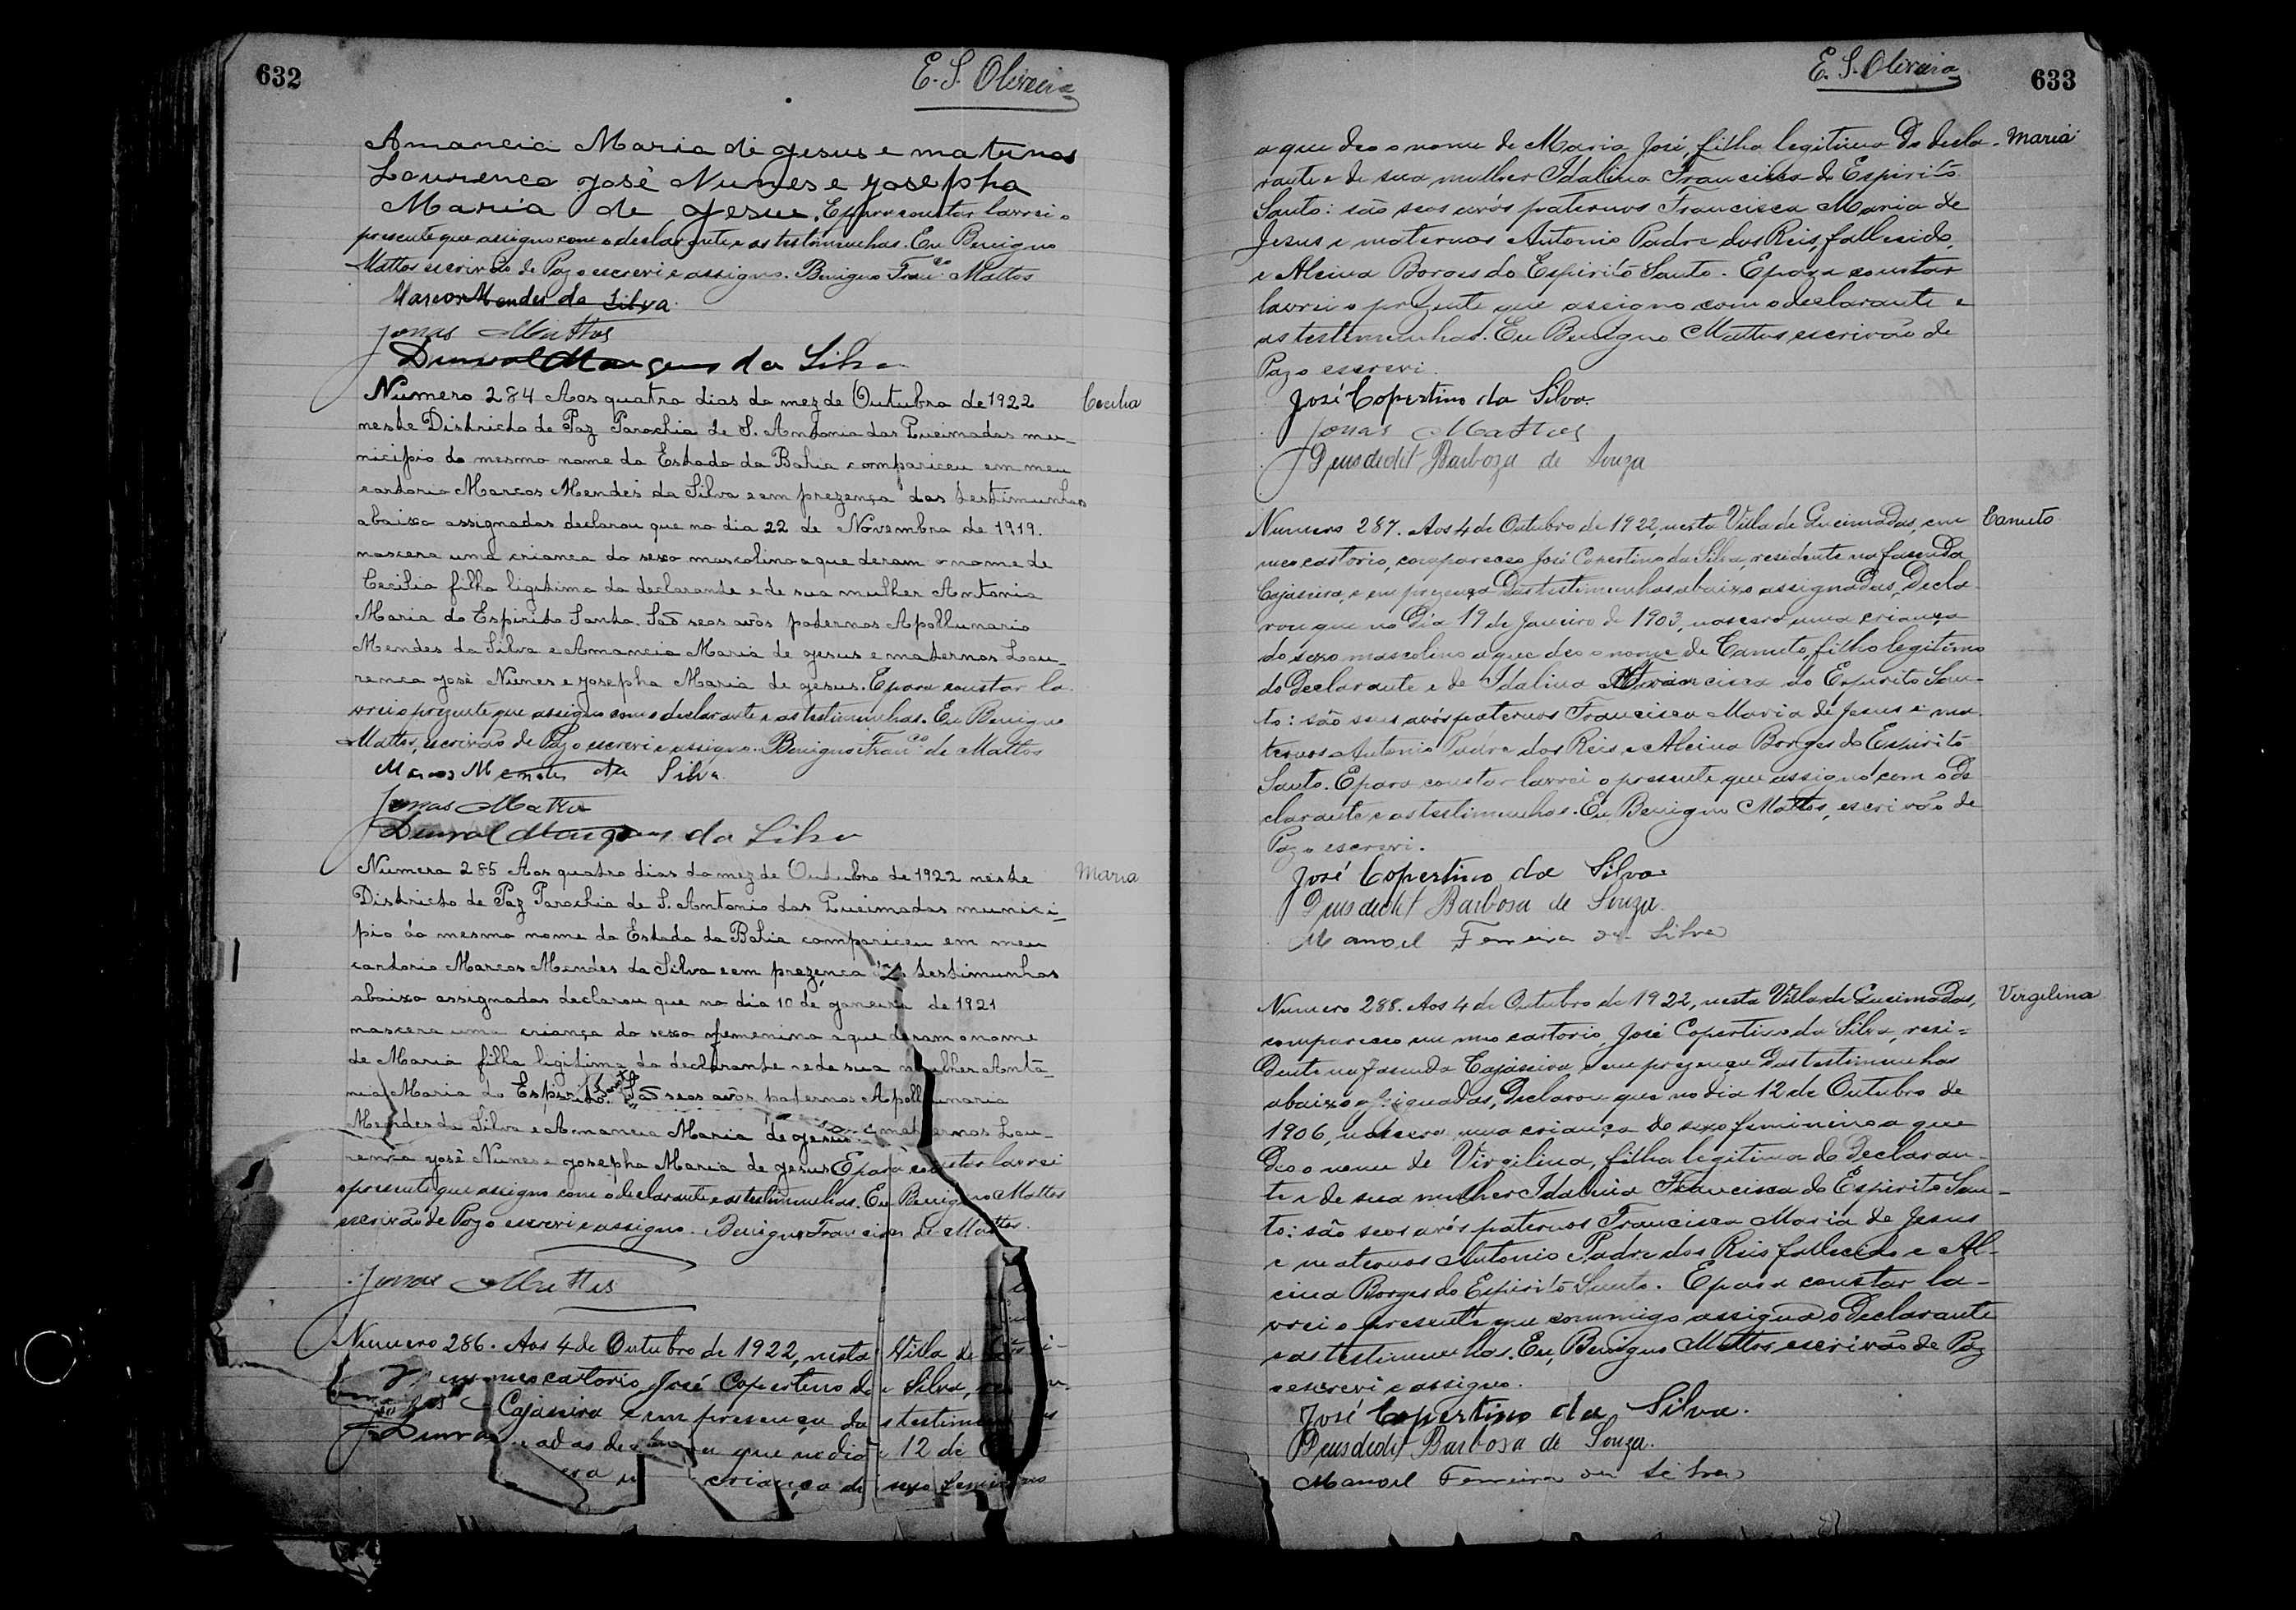 632
E. S. Oliveira
Amancia Maria de Jesus e maternos
Lourenco José Nunes e Josepha
Maria de Jesus. E para constar lavrei o
presente que assigno com o declarante e as testimunhas. Eu Benigno
Mattos escrivão de Paz o escrevi e assigno. Benigno Franco Mattos
Marcos Mendes da Silva
Jonas Mattos
Durval Marques da Silva
Numero 284 Aos quatro dias do mez de Outubro de 1922
Cecilia
neste Districto de Paz Parochia de S. Antonio das Queimadas mu-
nicipio do mesmo nome do Estado da Bahia compariceu em meu
cartorio Marcos Mendes da Silva e em prezença das testimunhas
abaixo assignadas declarou que no dia 22 de Novembro de 1919.
nascera uma crianca do sexo mascolino a que deram o nome de
Cecilia filho ligitimo do declarande e de sua mulher Antonia
Maria do Espirito Santo. São seos avós padernos Apollunario
Mendes da Silva e Amancia Maria de Jesus e maternos Lou-
renca José Nunes e Josepha Maria de Jesus. E para constar la-
vrei o prezente que assigno com o declarante e as testimunhas. Eu Benigno
Mattos, escrivão de Paz o escrevi e assigno. Benigno Franco de Mattos
Marcos Mendes da Silva
Jonas Mattos
Durval Marques da Silva
Numero 285 Aos quatro dias do mez de Outubro de 1922 neste
Maria
Districto de Paz Parochia de S. Antonio das Queimadas munici-
pio do mesmo nome do Estado da Bahia compariceu em meu
cartorio Marcos Mendes da Silva e em prezença das testimunhas
abaixo assignadas declarou que no dia 10 de Janeiro de 1921
nascera uma criança do sexo femenino a que deram o nome
de Maria filha legitima do declarante e de sua mulher Anto-
nia Maria do Espirito Santo. São seos avós paternos Apollunario
Mendes da Silva e Amancia Maria de Jesus e maternos Lou-
renca José Nunes e Josepha Maria de Jesus E para constar lavrei
o presente que assigno com o declarante e as testimunhas. Eu Benigno Mattos
escrivão de Paz o escrevi e assigno. Benigno Francisco de Mattos.
Jonas Mattos
Numero 286. Aos 4 de Outubro de 1922, nesta Villa de
em meo cartorio, José Copertino da Silva,
Cajaseira e em presença das
que no dia 12 de
criança do sexo
E. S. Oliveira
633
a que deo o nome de Maria José, filha legitima do decla-
Maria
rante e de sua mulher Idalina Francisca do Espirito
Santo: são seos avós paternos Francisca Maria de
Jesus e maternos Antonio Padre dos Reis, fallecido,
e Alcina Borges do Espirito Santo. E para constar
lavrei o prezente que assigno com o declarante e
as testimunhas. Eu Benigno Mattos escrivão de
Paz o escrevi.
José Copertino da Silva.
Jonas Mattos
Deusdedit Barboza de Souza
Numero 287. Aos 4 de Outubro de 1922, nesta Villa de Queimadas, em
Canuto
meo cartorio, compareceo José Copertino da Silva, residente na fasenda
Cajaseira, e em prezença das testimunhas abaixo assignadas, decla-
rou que no dia 19 de Janeiro de 1903, nascera uma criança
do sexo mascolino a que deo o nome de Canuto, filho legitimo
do declarante e de Idalina Francisca do Espirito San-
to: são seus avós paternos Francisca Maria de Jesus e ma-
ternos Antonio Padre dos Reis e Alcina Borges do Espirito
Santo. E para constar lavrei o presente que assigno com o de-
clarante e as testimunhas. Eu, Benigno Mattos, escrivão de
Paz o escrevi.
José Copertino da Silva
Deusdedit Barbosa de Souza.
Manoel Ferreira da Silva
Numero 288. Aos 4 de Outubro de 1922, nesta Villa de Queimadas,
Vergilina
compareceo em meo cartorio, José Copertino da Silva, resi-
dente na fasenda Cajaseira, e em prezença das testimunhas
abaixo assignadas, declarou que no dia 12 de Outubro de
1906, nascera uma criança do sexo feminino a que
deo o nome de Virgilina, filha legitima do declaran-
te e de sua mulher Idalina Francisca do Espirito San-
to: são seos avós paternos Francisca Maria de Jesus
e maternos Antonio Padre dos Reis fallecido e Al-
cina Borges do Espirito Santo. E para constar la-
vrei o presente que commigo assigna o declarante
e as testimunhas. Eu, Benigno Mattos, escrivão de Paz
o escrevi e assigno.
José Copertino da Silva.
Deusdedit Barbosa de Souza.
Manoel Ferreira da Silva